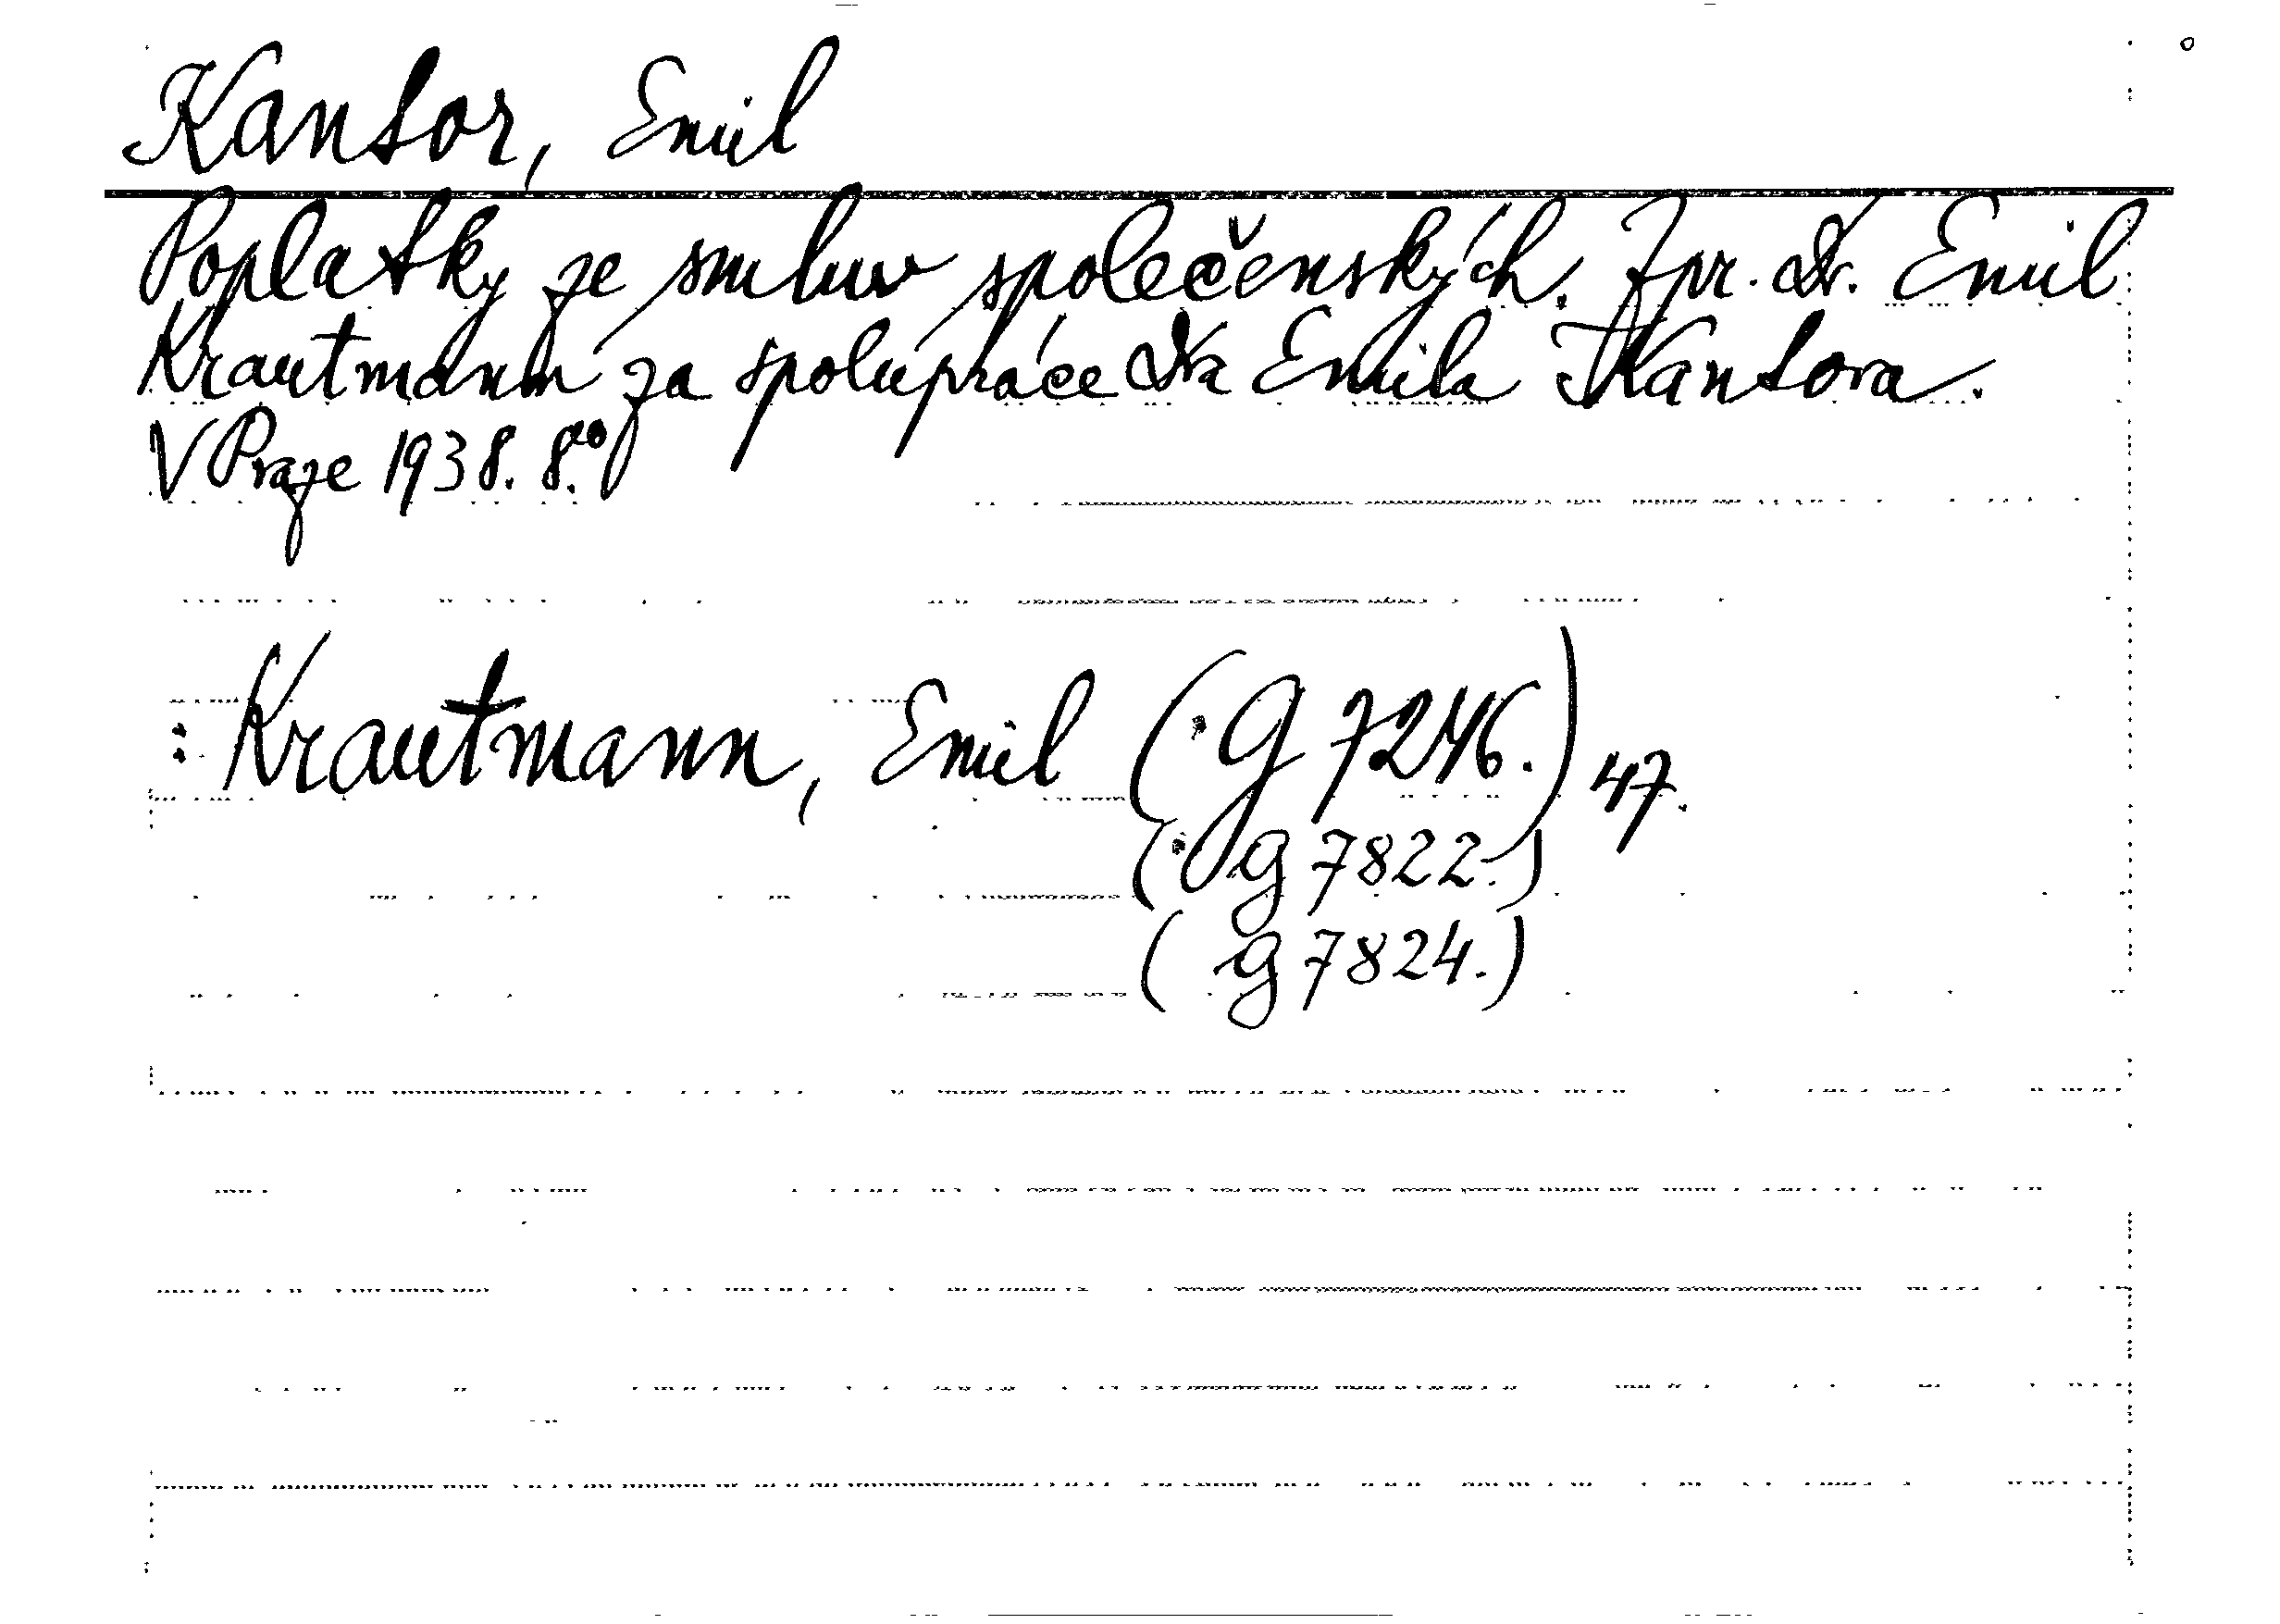 Kantor, Emil
Poplatky ze smluv společenských. Zpr. Dr. Emil
Krautmann za spolupráce Dra Emila Kantora.
V Praze 1938. 8.°
: Krautmann, Emil (G 7246.) 47.
(g 7822.)
(g 7824.)